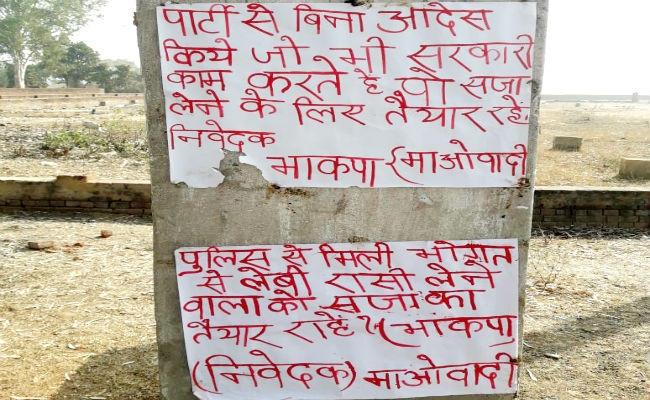 पार्टी से बिना आदेस
किये जो भी सरकारी
काम करते है वो सजा
लेने के लिए तैयार रहें।
निवेदक
भाकपा (माओवादी
पुलिस से मिली भोगत
से लेबी रासी लेने
वाला को सजा का
तैयार राहें (भाकपा
(निवेदक) माओवादी